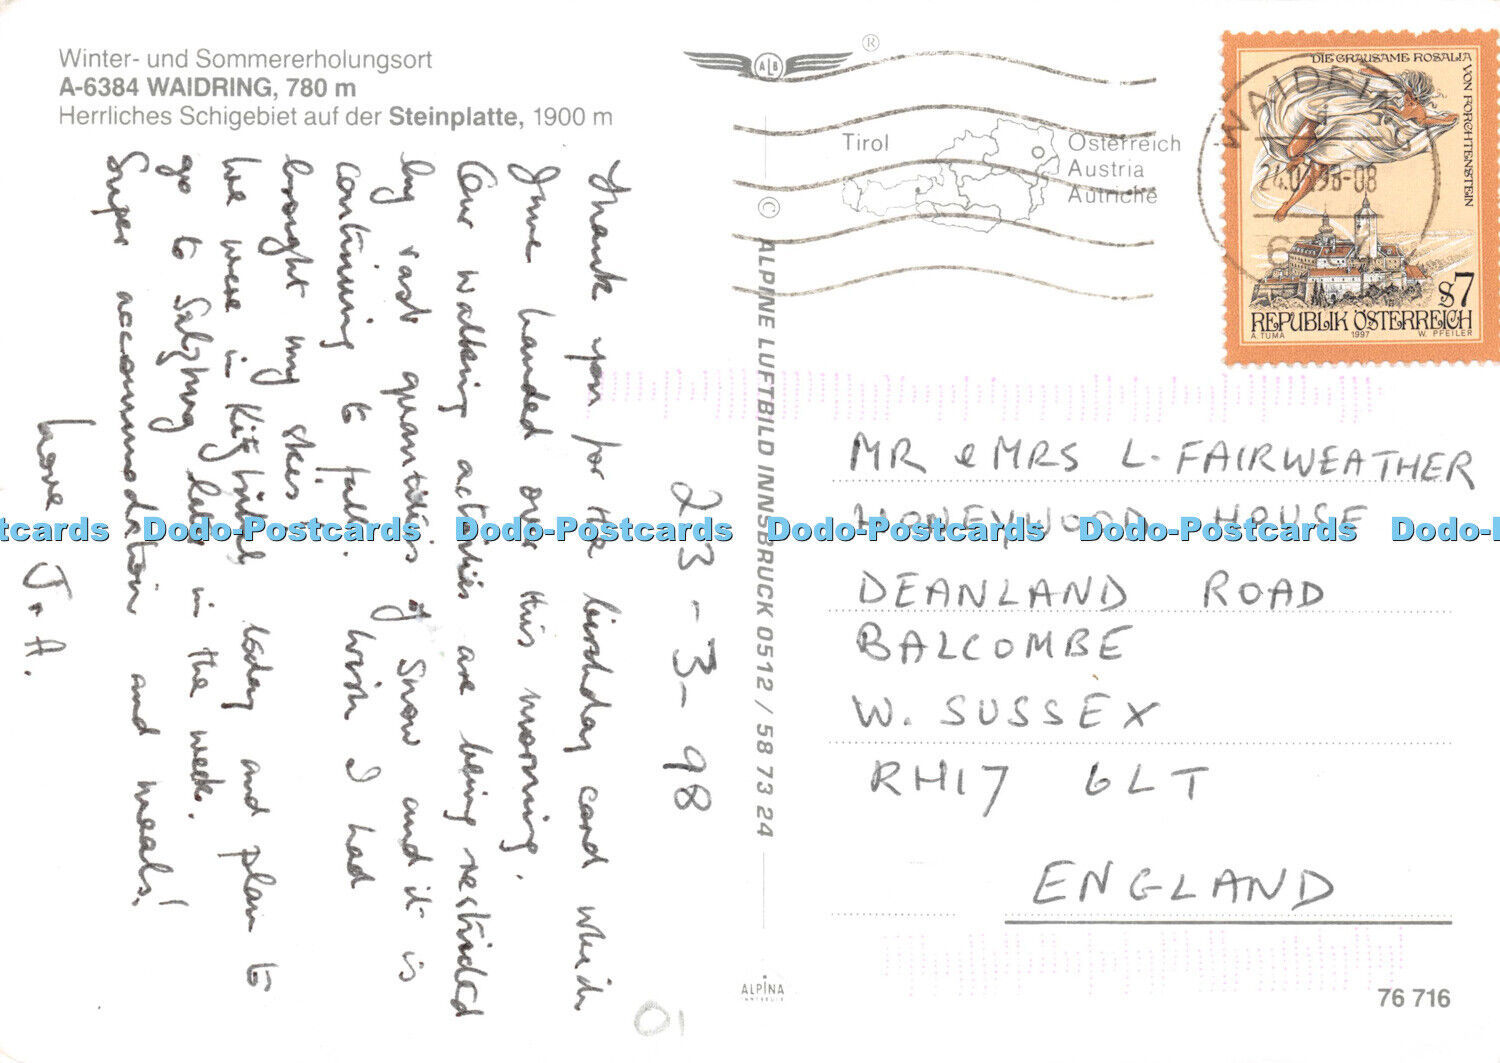 Winter- und Sommererholungsort
A-6384 WAIDRING, 780 m
Herrliches Schigebiet auf der Steinplatte, 1900 m
ALB
®
Tirol
Österreich
Austria
Autriche
DIE GRAUSAME ROSALIA VON FORCHTENSTEIN
S7
REPUBLIK ÖSTERREICH
A. TUMA 1997 W. PFEILER
WAIDRING
98-08
23-3-98
Thank you for the birthday card which
June handed over this morning.
Our walking activities are being restricted
by vast quantities of snow and it is
continuing to fall. Wish I had
brought my skis!
We were in Kitzbühel today and plan to
go to Salzburg later in the week.
Super accommodation and meals!
Love J + A.
© ALPINE LUFTBILD INNSBRUCK 0512 / 58 73 24
MR & MRS L. FAIRWEATHER
HONEYWOOD HOUSE
DEANLAND ROAD
BALCOMBE
W. SUSSEX
RH17 6LT
ENGLAND
ALPINA
INNSBRUCK
76 716
01
Dodo-Postcards Dodo-Postcards Dodo-Postcards Dodo-Postcards Dodo-Postcards